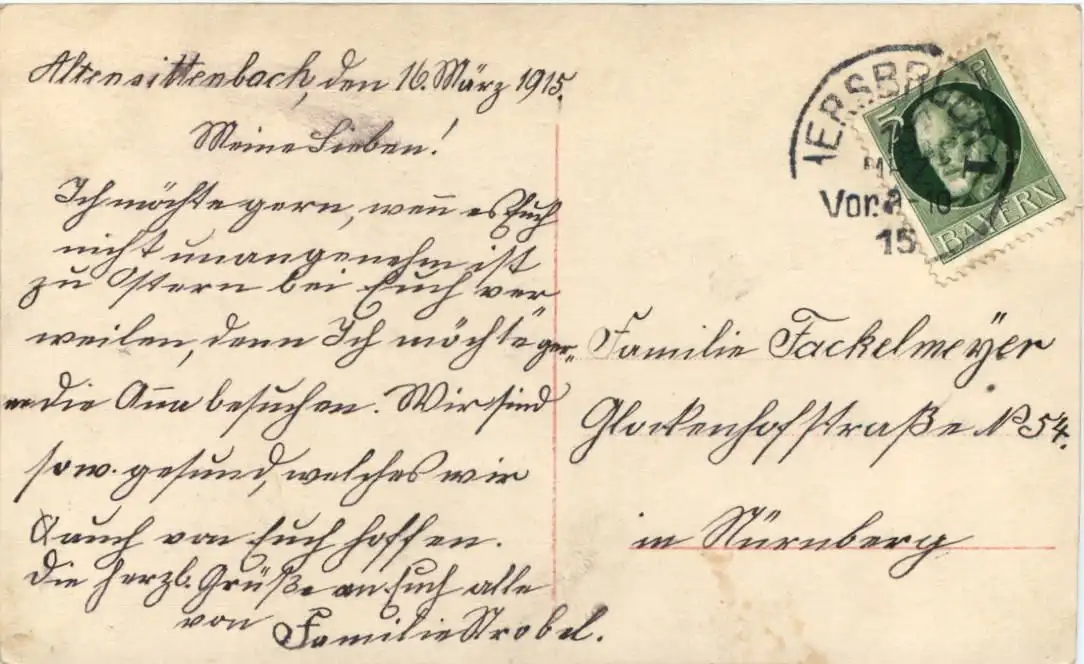 Altensittenbach, den 16. März 1915.
Meine Lieben!
Ich möchte gern, weñ es Euch
nicht unangenehm ist
zu Ostern bei Euch ver
weilen, denn Ich möchte ger„
ne die Aña besuchen. Wir sind
so w. gesund, welches wir
auch von Euch hoffen.
Die herzl. Grüße an Euch alle
von Familie Strobel.
HERSBRUCK 1
Vor. 9-10
15
5
BAYERN
Familie Fackelmeÿer
Glockenhofstraße No 54.
in Nürnberg